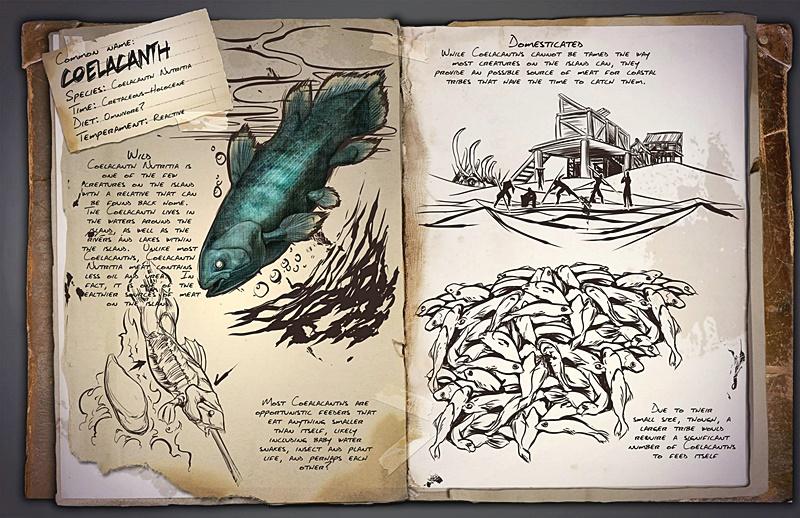 Common name:
COELACANTH
Species: Coelacanth Nutritia
Time: Cretaceous-Holocene
Diet: Omnivore?
Temperament: Reactive
Wild
Coelacanth Nutritia is
one of the few
creatures on the island
with a relative that can
be found back home.
The Coelacanth lives in
the waters around the
island, as well as the
rivers and lakes within
the island. Unlike most
Coelacanths, Coelacanth
Nutritia meat contains
less oil and urea. In
fact, it is one of the
healthier sources of meat
on the island
Most Coealacanths are
opportunistic feeders that
eat anything smaller
than itself, likely
including baby water
snakes, insect and plant
life, and perhaps each
other?
Domesticated
While Coelacanths cannot be tamed the way
most creatures on the island can, they
provide an possible source of meat for coastal
tribes that have the time to catch them.
Due to their
small size, though, a
larger tribe would
require a significant
number of Coelacanths
to feed itself